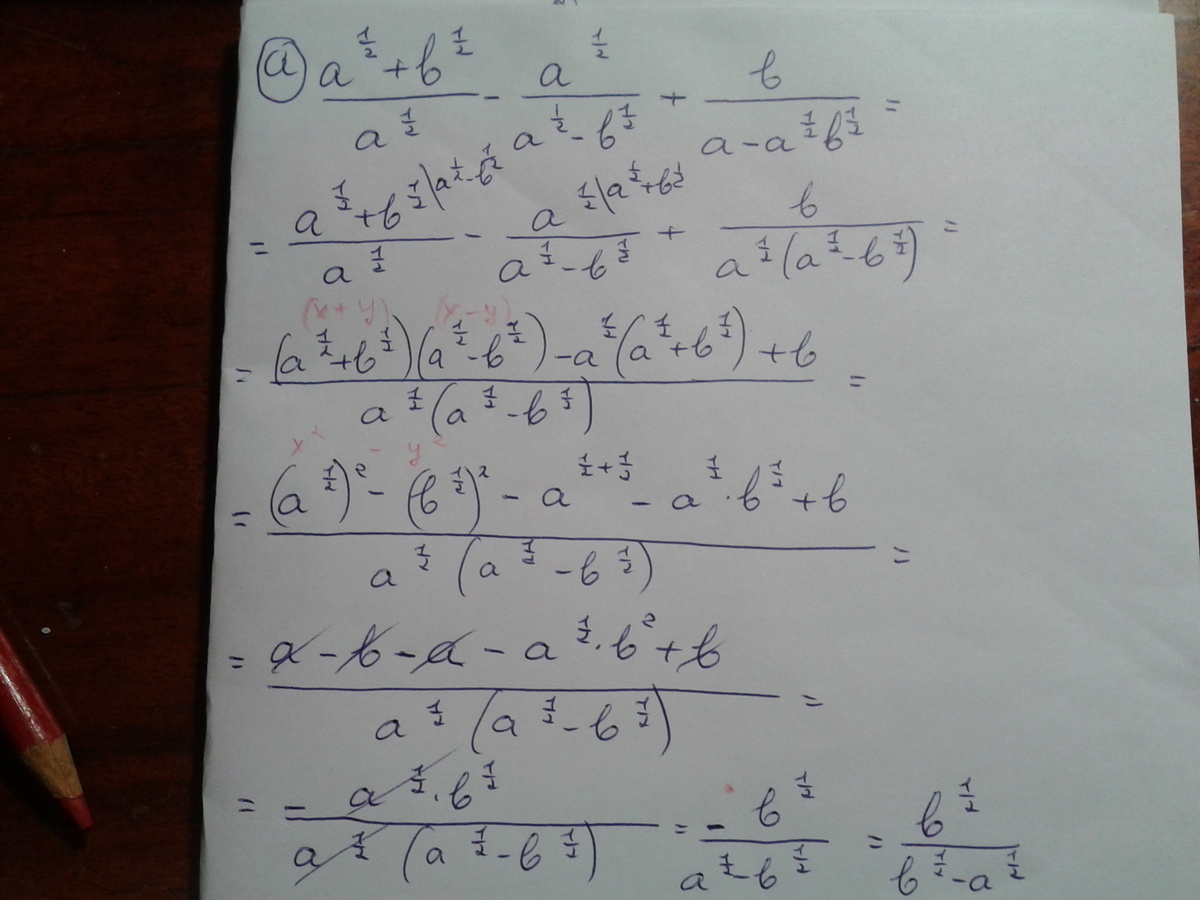 а) (a^(1/2) + b^(1/2))/(a^(1/2)) - (a^(1/2))/(a^(1/2) - b^(1/2)) + b/(a - a^(1/2) b^(1/2)) =
= (a^(1/2) + b^(1/2) \a^(1/2) - b^(1/2))/(a^(1/2)) - (a^(1/2) \a^(1/2) + b^(1/2))/(a^(1/2) - b^(1/2)) + b/(a^(1/2) (a^(1/2) - b^(1/2))) =
(x + y) (x - y)
= ((a^(1/2) + b^(1/2))(a^(1/2) - b^(1/2)) - a^(1/2) (a^(1/2) + b^(1/2)) + b)/(a^(1/2) (a^(1/2) - b^(1/2))) =
x^2 - y^2
= ((a^(1/2))^2 - (b^(1/2))^2 - a^(1/2 + 1/2) - a^(1/2) · b^(1/2) + b)/(a^(1/2) (a^(1/2) - b^(1/2))) =
= (a - b - a - a^(1/2) · b^2 + b)/(a^(1/2) (a^(1/2) - b^(1/2))) =
= (- a^(1/2) · b^(1/2))/(a^(1/2) (a^(1/2) - b^(1/2))) = - (b^(1/2))/(a^(1/2) - b^(1/2)) = (b^(1/2))/(b^(1/2) - a^(1/2))